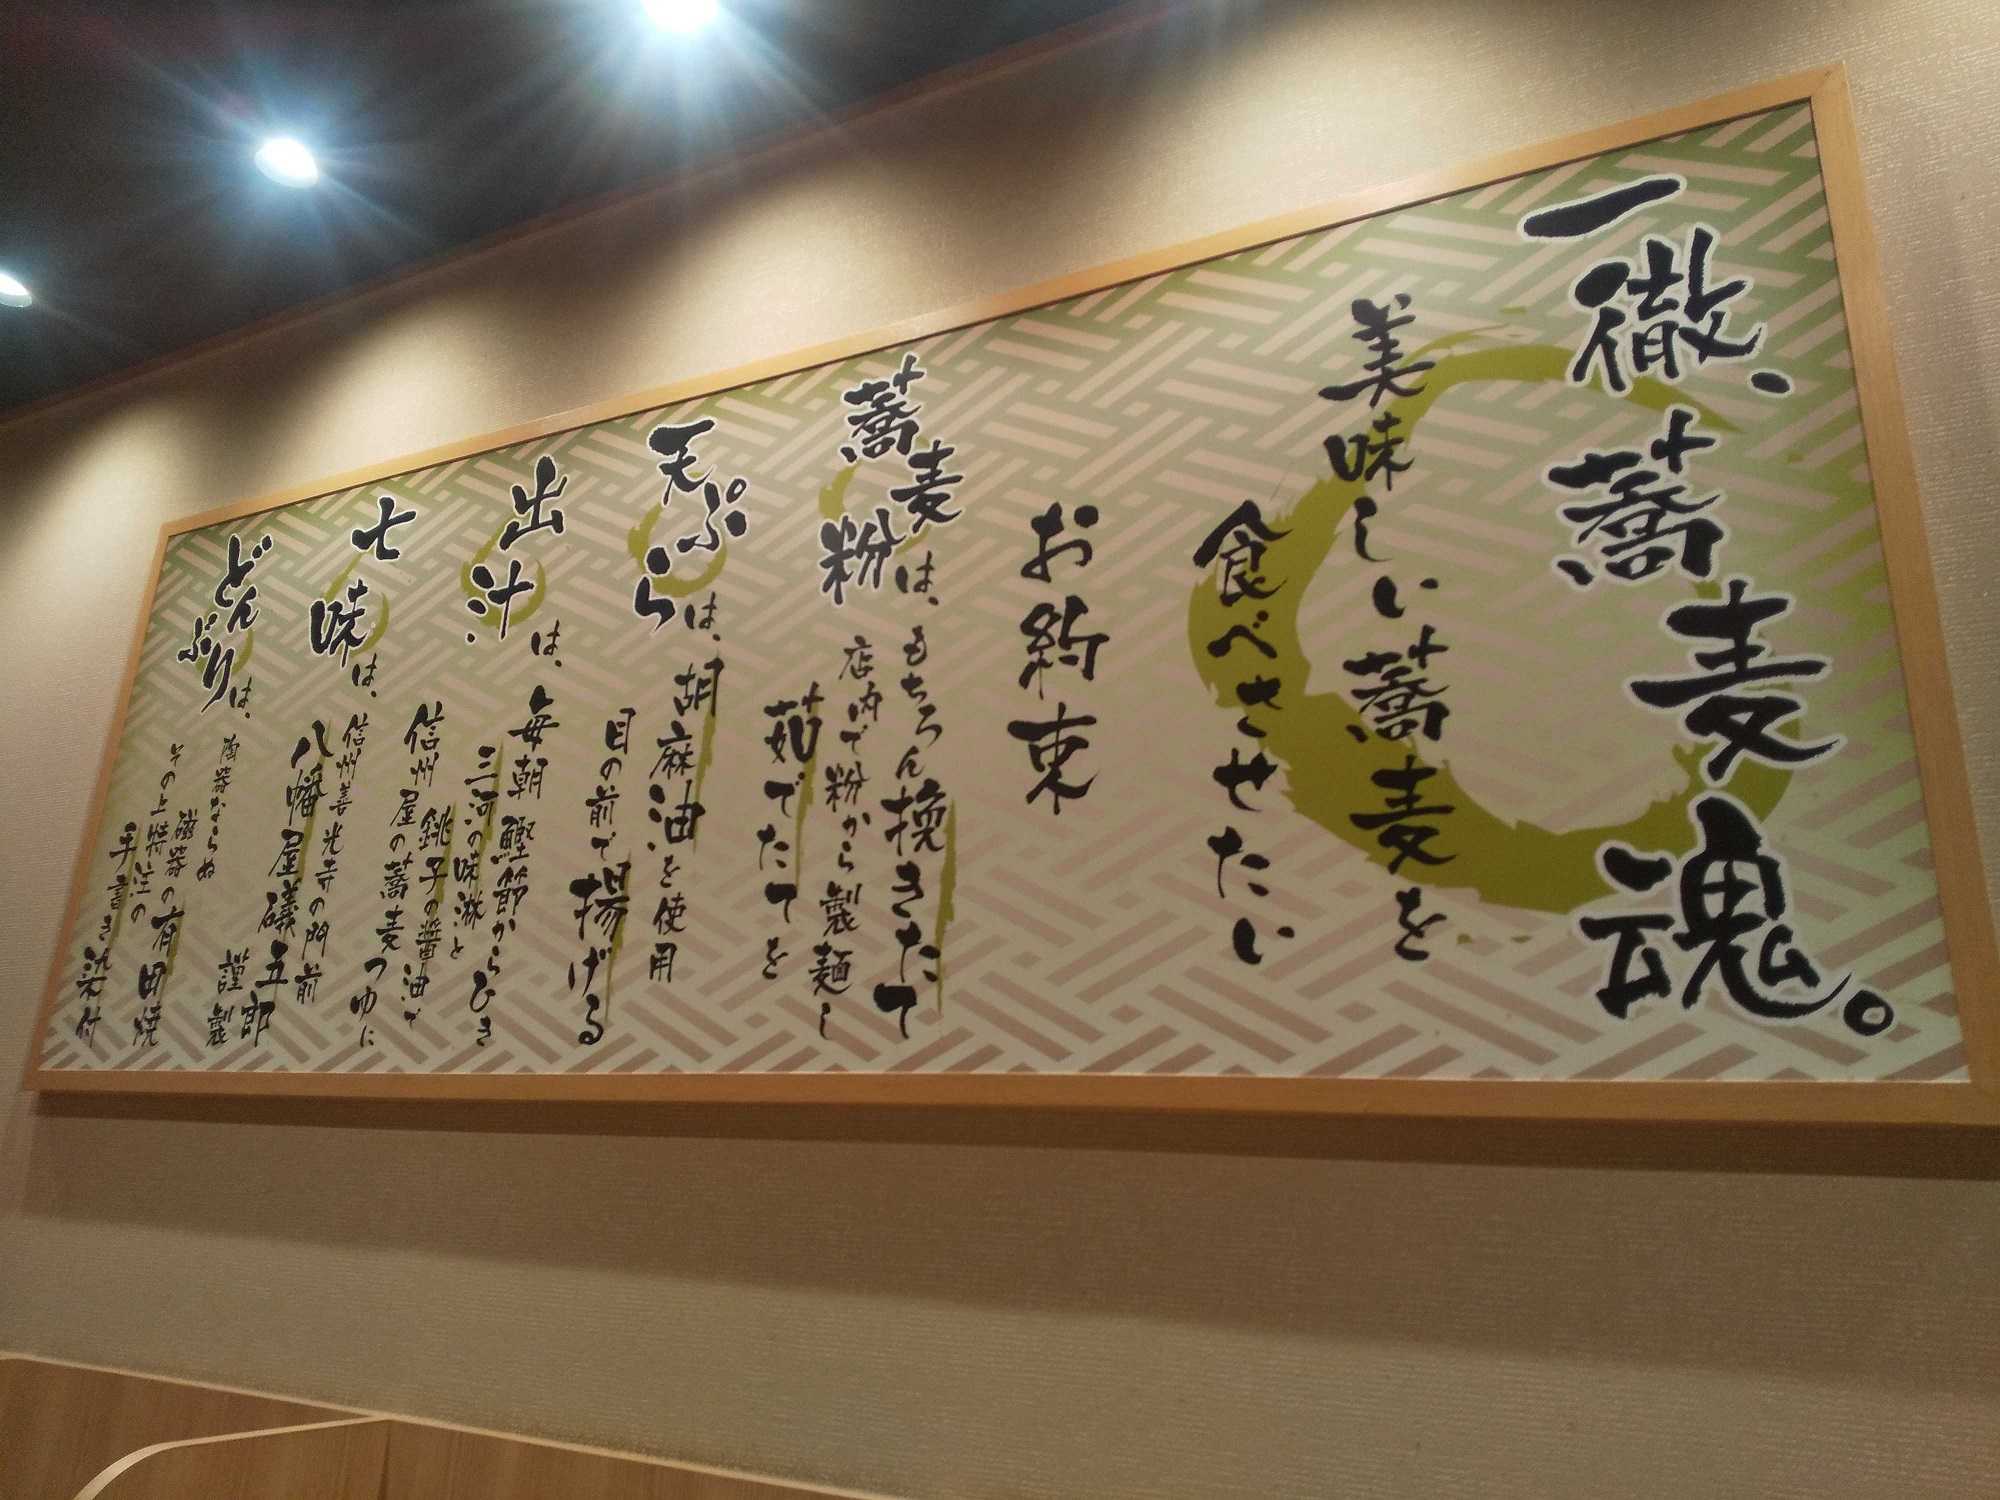 一徹、蕎麦魂。
美味しい蕎麦を
食べさせたい
お約束
蕎麦粉は、もちろん挽きたて
店内で粉から製麺し
茹でたてを
天ぷらは、胡麻油を使用
目の前で揚げる
出汁は、毎朝鰹節からひき
三河の味淋と
銚子の醤油で
信州屋の蕎麦つゆに
七味は、信州善光寺の門前
八幡屋礒五郎
謹製
どんぶりは、陶器ならぬ
磁器の有田焼
その上特注の
手書き染付